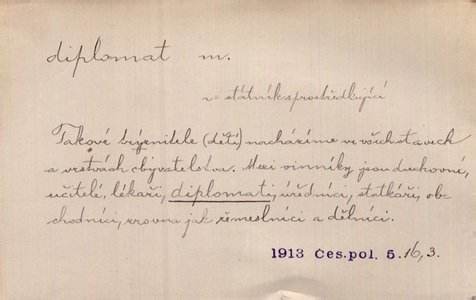 diplomat m.
= státník zprostředkující
Takové trýznitele (dětí) nacházíme ve všech stavech
a vrstvách obyvatelstva. Mezi vinníky jsou duchovní,
učitelé, lékaři, diplomati, úředníci, statkáři, ob-
chodníci, zrovna jak řemeslníci a dělníci.
1913 Čes. pol. 5. 16, 3.